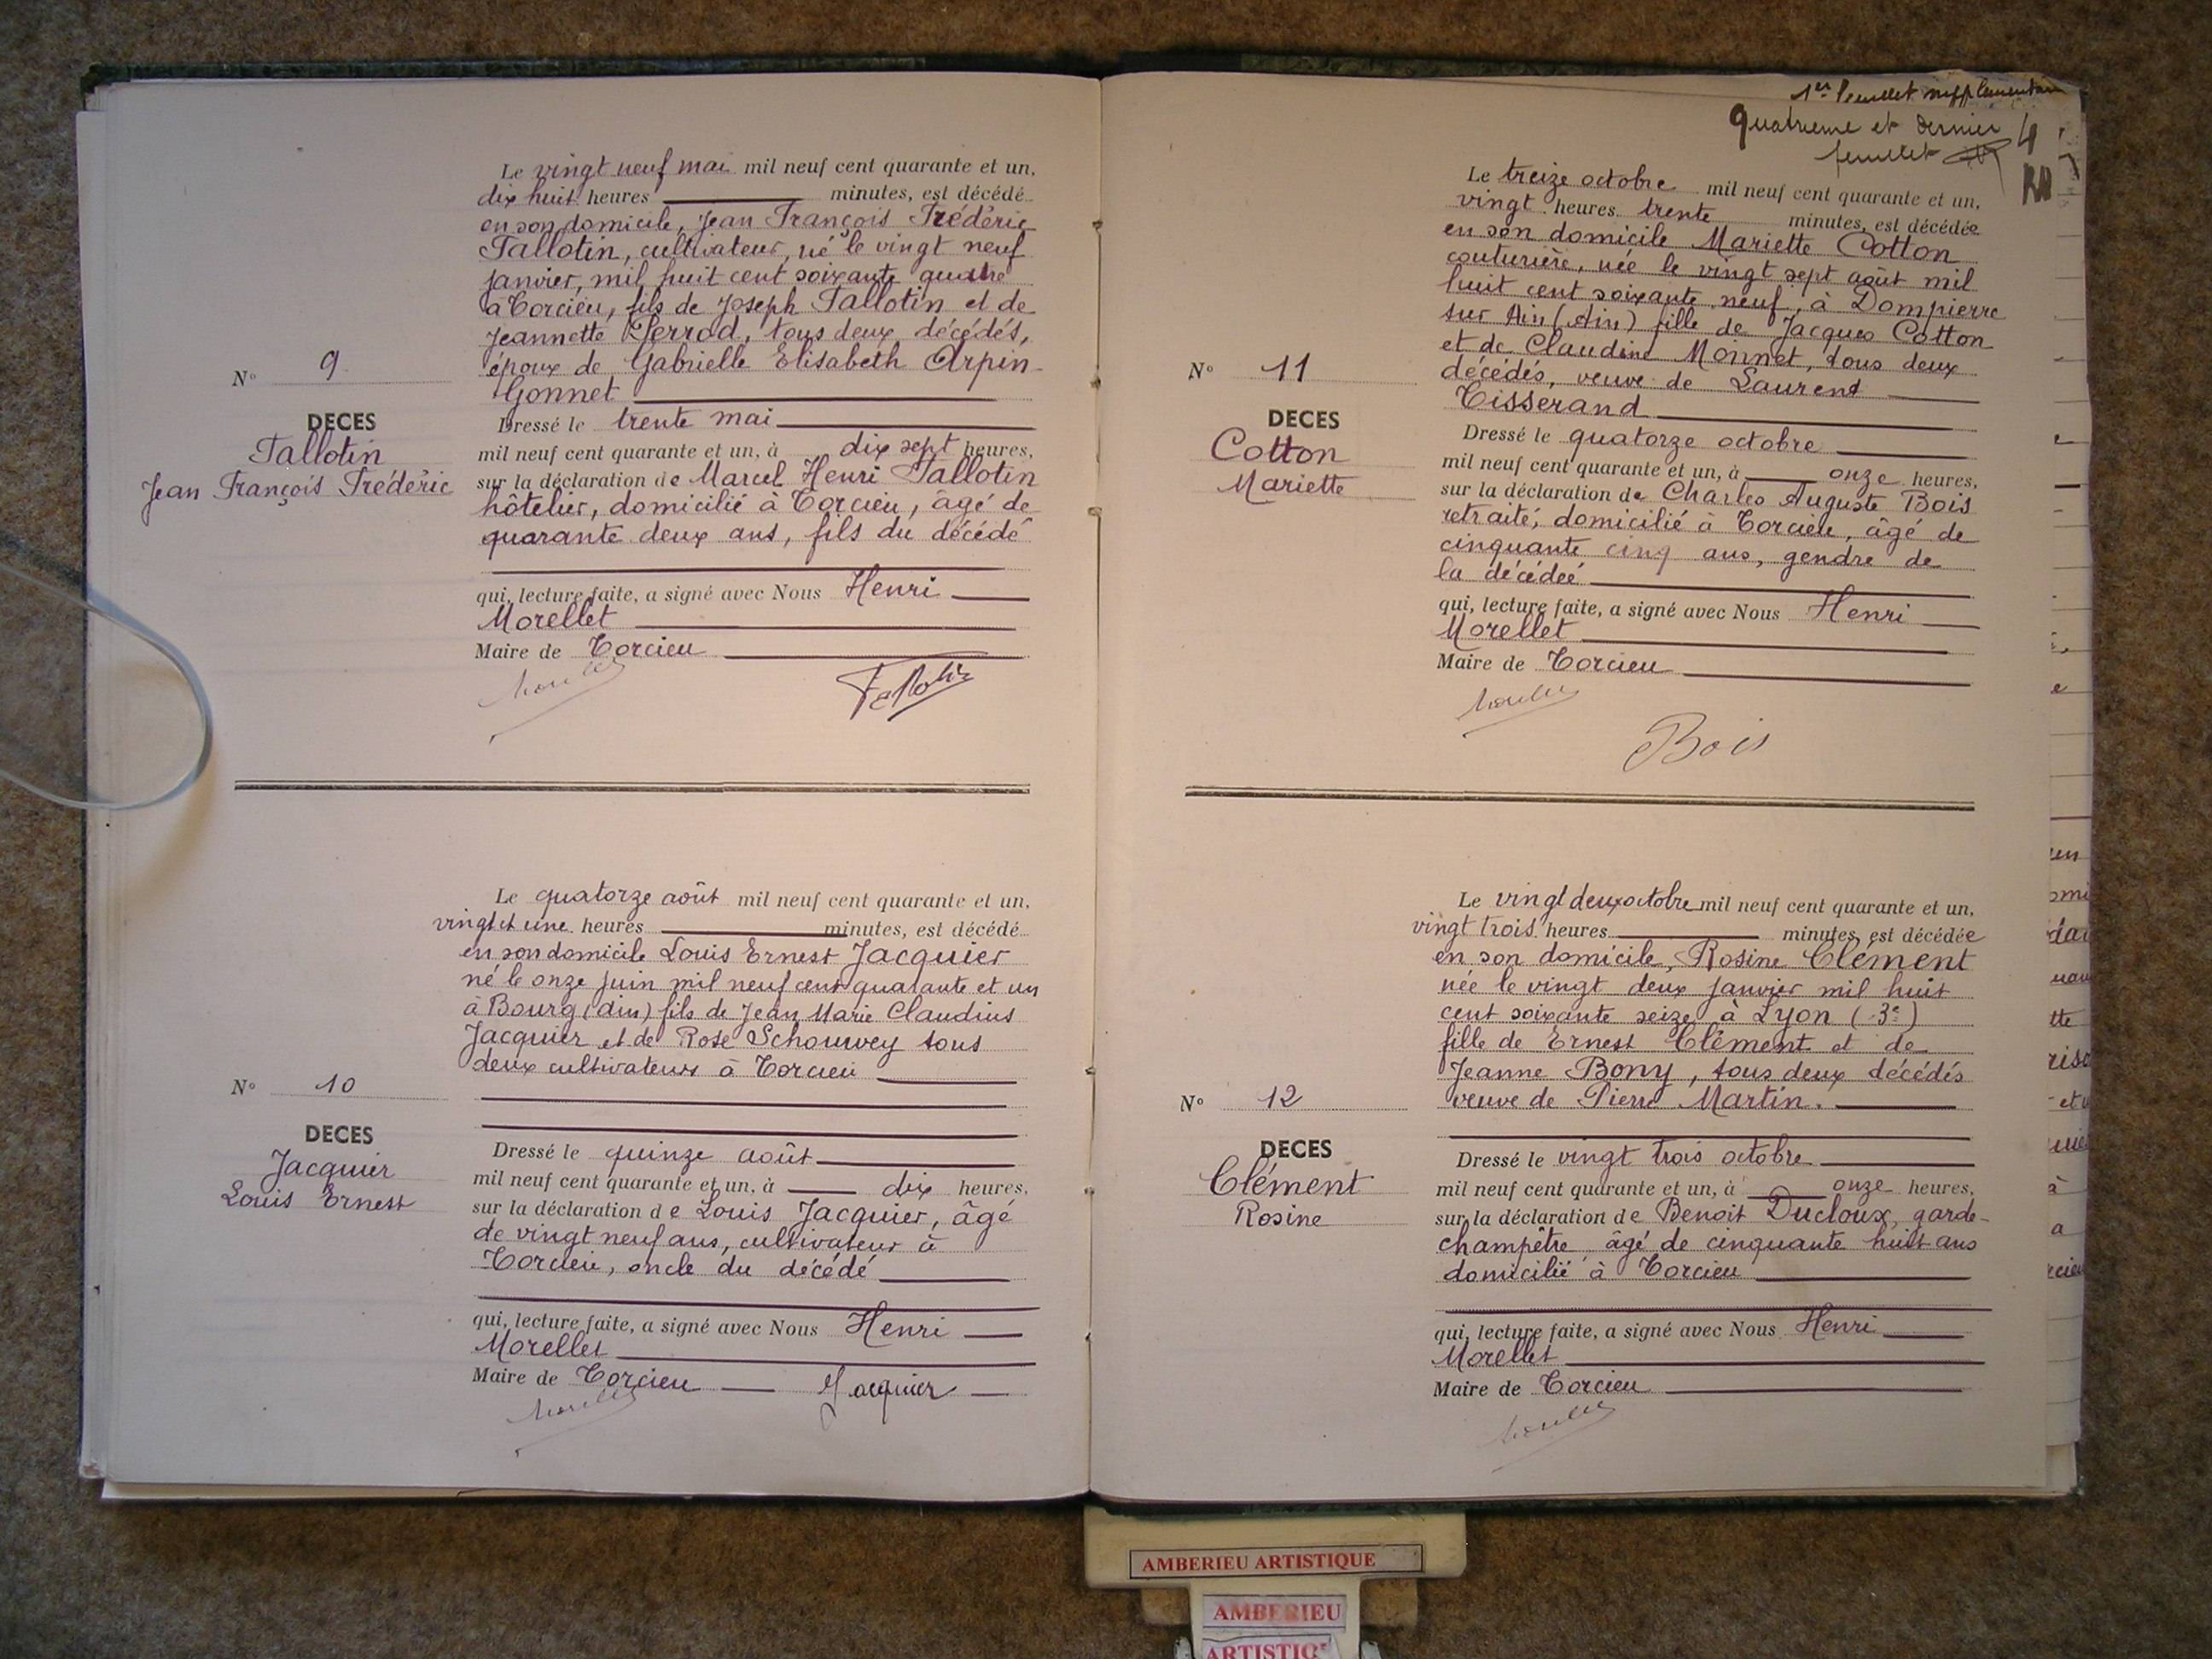 Le vingt neuf mai mil neuf cent quarante et un,
dix huit heures minutes, est décédé
en son domicile, Jean François Frédéric
Tallotin, cultivateur, né le vingt neuf
janvier, mil huit cent soixante quatre
à Torcieu, fils de Joseph Tallotin et de
Jeannette Perrod, tous deux décédés,
époux de Gabrielle Elisabeth Arpin-
Gonnet
N° 9
DECES
Tallotin
Jean François Frédéric
Dressé le trente mai
mil neuf cent quarante et un, à dix sept heures,
sur la déclaration de Marcel Henri Tallotin
hôtelier, domicilié à Torcieu, âgé de
quarante deux ans, fils du décédé
qui, lecture faite, a signé avec Nous Henri
Morellet
Maire de Torcieu
Tallotin
Le quatorze août mil neuf cent quarante et un,
vingt et une heures minutes, est décédé
en son domicile Louis Ernest Jacquier
né le onze juin mil neuf cent quarante et un
à Bourg (Ain) fils de Jean Marie Claudius
Jacquier et de Rose Schouwey tous
deux cultivateurs à Torcieu
N° 10
DECES
Jacquier
Louis Ernest
Dressé le quinze août
mil neuf cent quarante et un, à dix heures,
sur la déclaration de Louis Jacquier, âgé
de vingt neuf ans, cultivateur à
Torcieu, oncle du décédé
qui, lecture faite, a signé avec Nous Henri
Morellet
Maire de Torcieu Jacquier
1er feuillet supplémentaire
Quatrième et dernier 4
feuillet
Le treize octobre mil neuf cent quarante et un,
vingt heures trente minutes, est décédée
en son domicile Mariette Cotton
couturière, née le vingt sept août mil
huit cent soixante neuf, à Dompierre
sur Ain (Ain) fille de Jacques Cotton
et de Claudine Moinnet, tous deux
décédés, veuve de Laurent
Tisserand
N° 11
DECES
Cotton
Mariette
Dressé le quatorze octobre
mil neuf cent quarante et un, à onze heures,
sur la déclaration de Charles Auguste Bois
retraité, domicilié à Torcieu, âgé de
cinquante cinq ans, gendre de
la décédée
qui, lecture faite, a signé avec Nous Henri
Morellet
Maire de Torcieu
Bois
Le vingt deux octobre mil neuf cent quarante et un,
vingt trois heures minutes, est décédée
en son domicile, Rosine Clément
née le vingt deux janvier mil huit
cent soixante seize à Lyon (3e)
fille de Ernest Clément et de
Jeanne Bony, tous deux décédés
veuve de Pierre Martin.
N° 12
DECES
Clément
Rosine
Dressé le vingt trois octobre
mil neuf cent quarante et un, à onze heures,
sur la déclaration de Benoit Ducloux, garde-
champêtre âgé de cinquante huit ans
domicilié à Torcieu
qui, lecture faite, a signé avec Nous Henri
Morellet
Maire de Torcieu
AMBERIEU ARTISTIQUE
AMBERIEU
ARTISTIQ